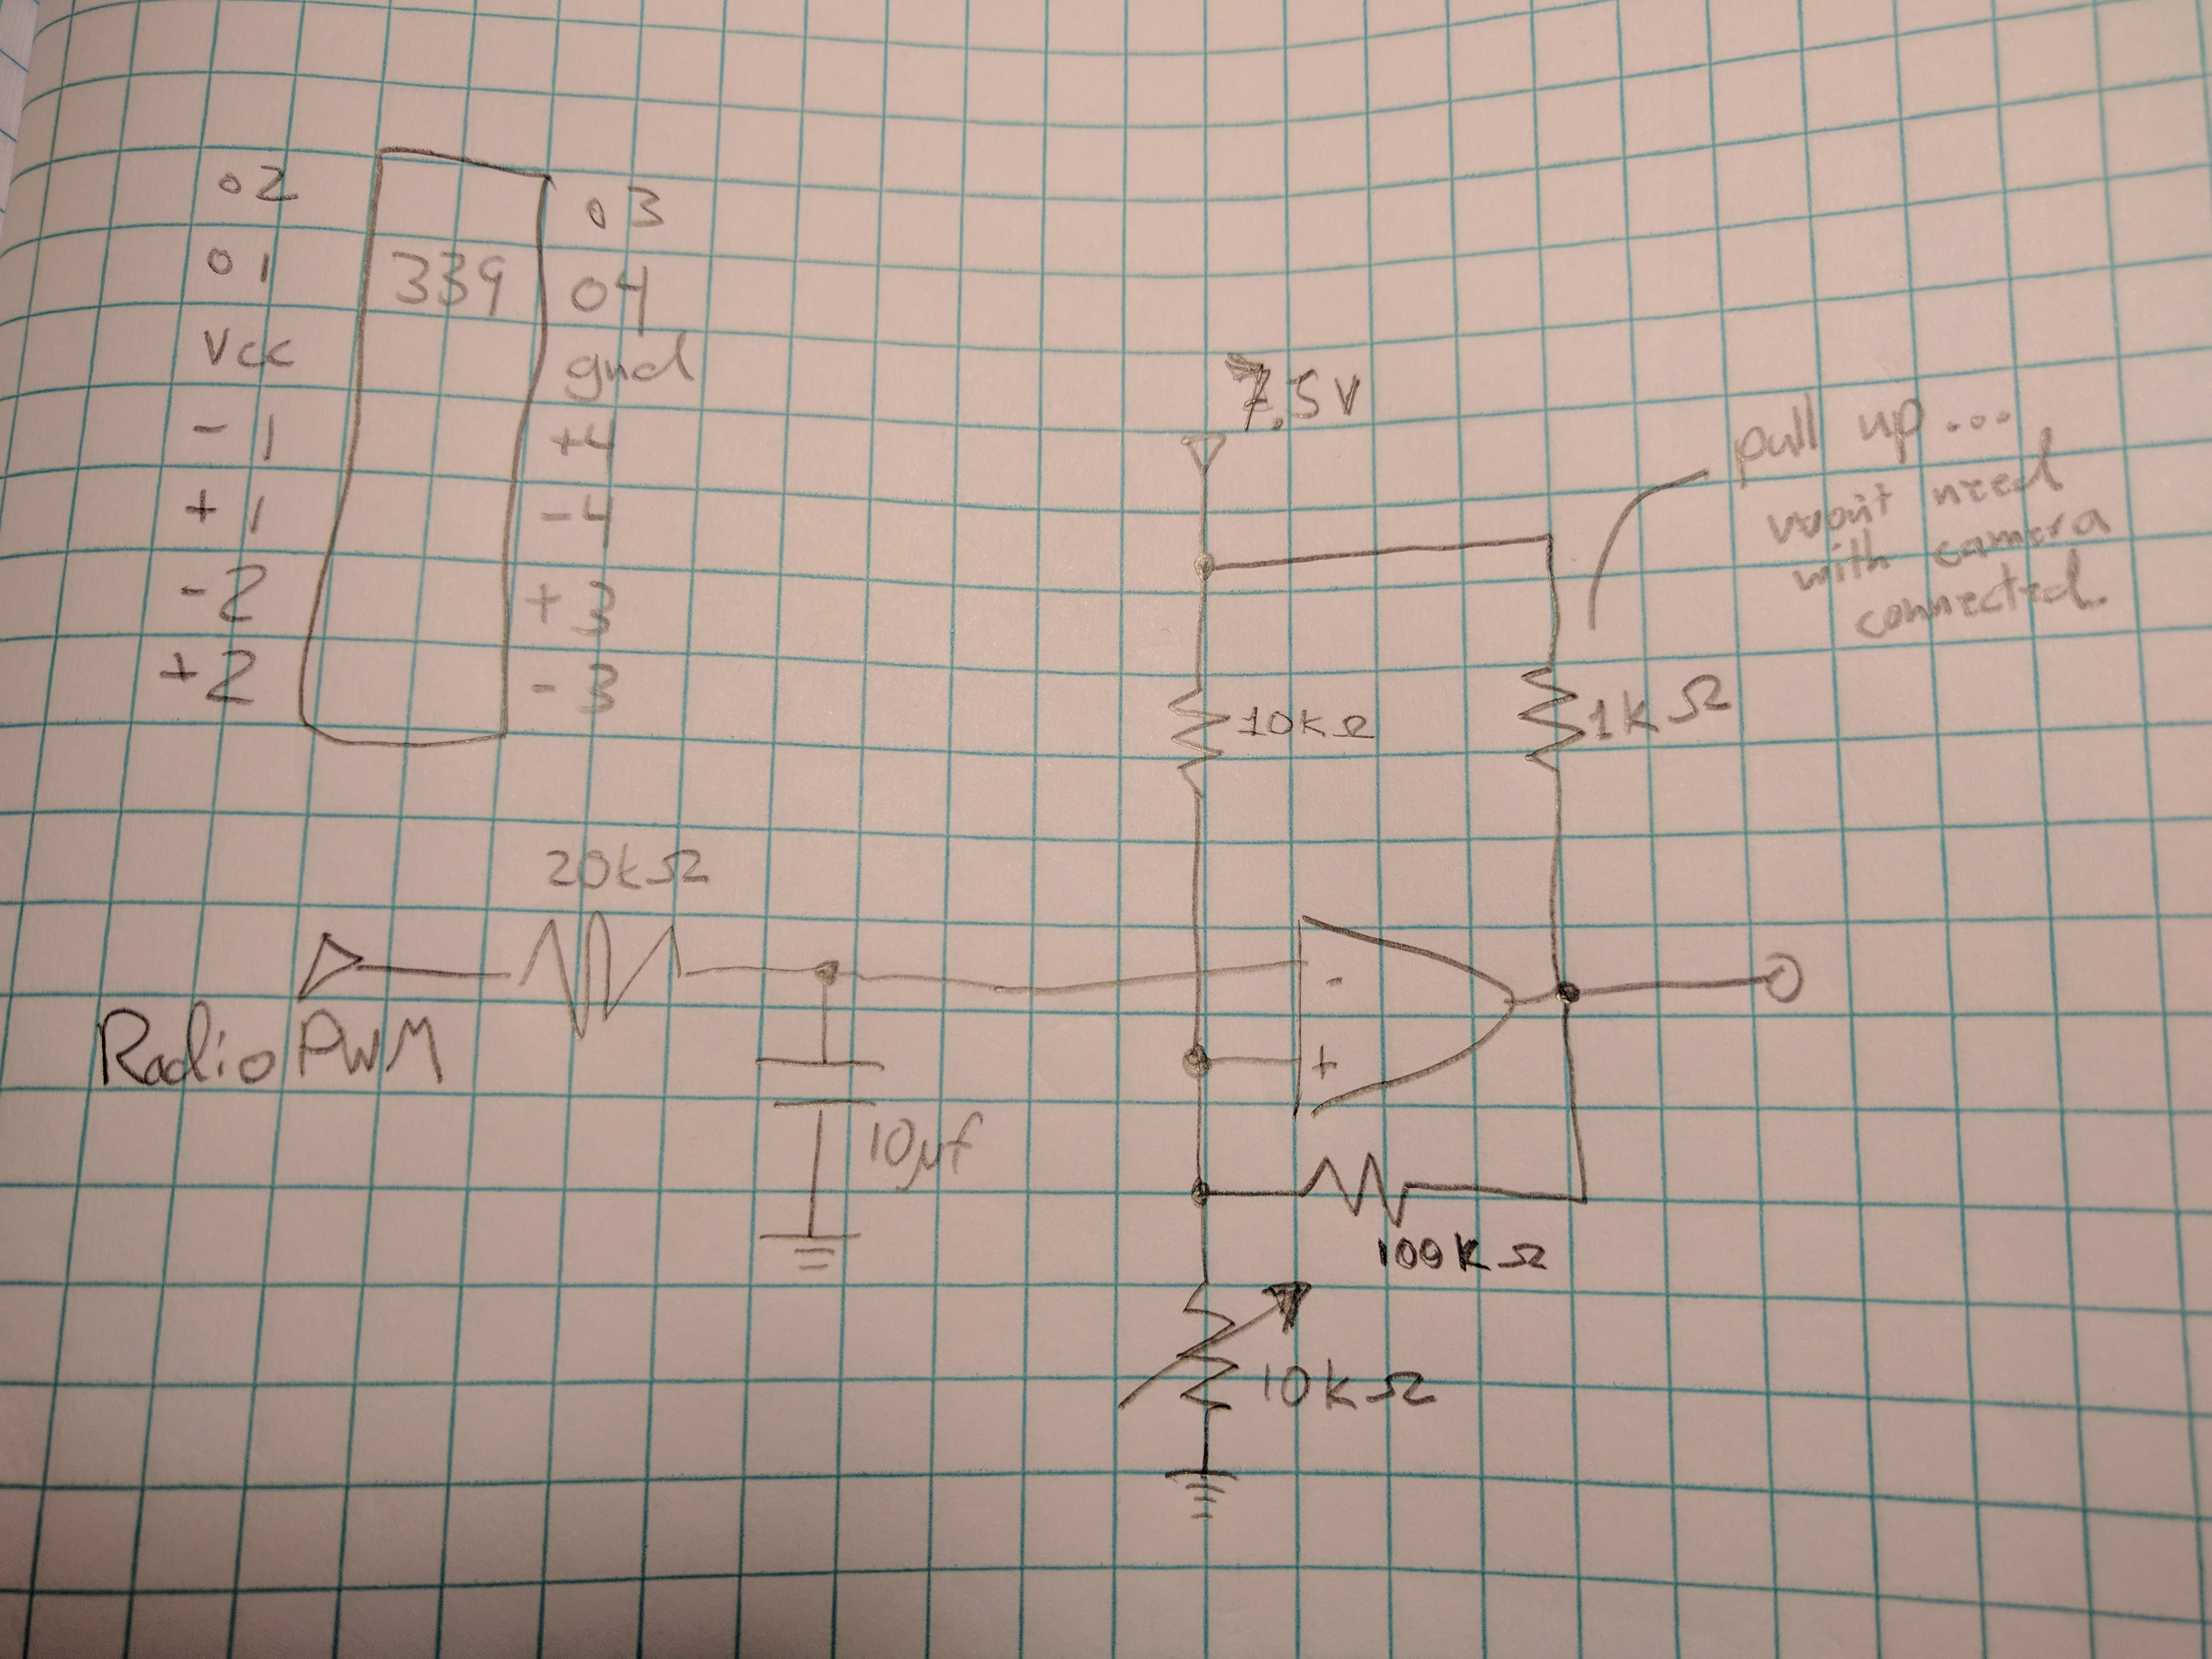 02
01
Vcc
-1
+1
-2
+2
339
03
04
gnd
+4
-4
+3
-3
7.5V
pull up...
won't need
with camera
connected.
10kΩ
1kΩ
20kΩ
Radio PWM
10µf
-
+
100kΩ
10kΩ